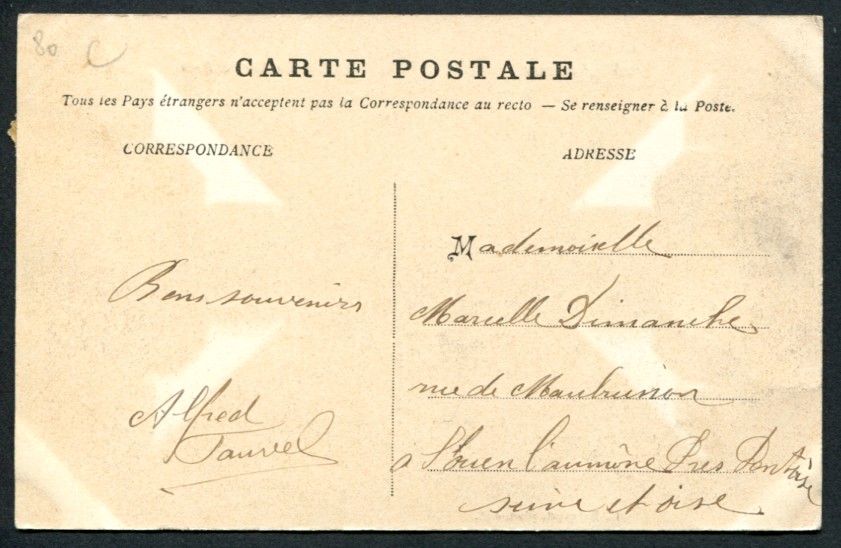 80 C
CARTE POSTALE
Tous les Pays étrangers n'acceptent pas la Correspondance au recto — Se renseigner à la Poste.
CORRESPONDANCE
ADRESSE
Bons souvenirs
Alfred
Mademoiselle
Marcelle Dimanche
rue de Maubuisson
a St Ouen l'aumône Pres Pontoise
seine et oise